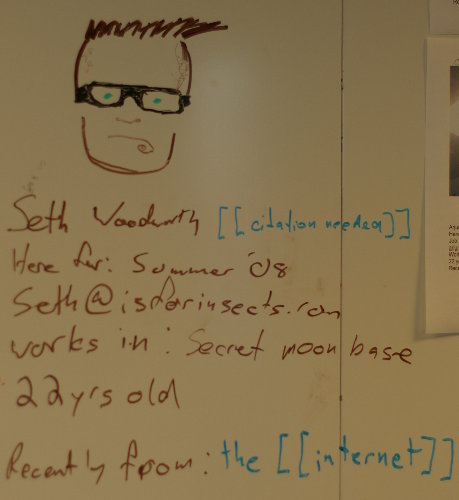 Seth Woodworth [[citation needed]]
Here for: Summer '08
Seth@isforinsects.com
works in: Secret moon base
22 yrs old
Recently from: the [[internet]]